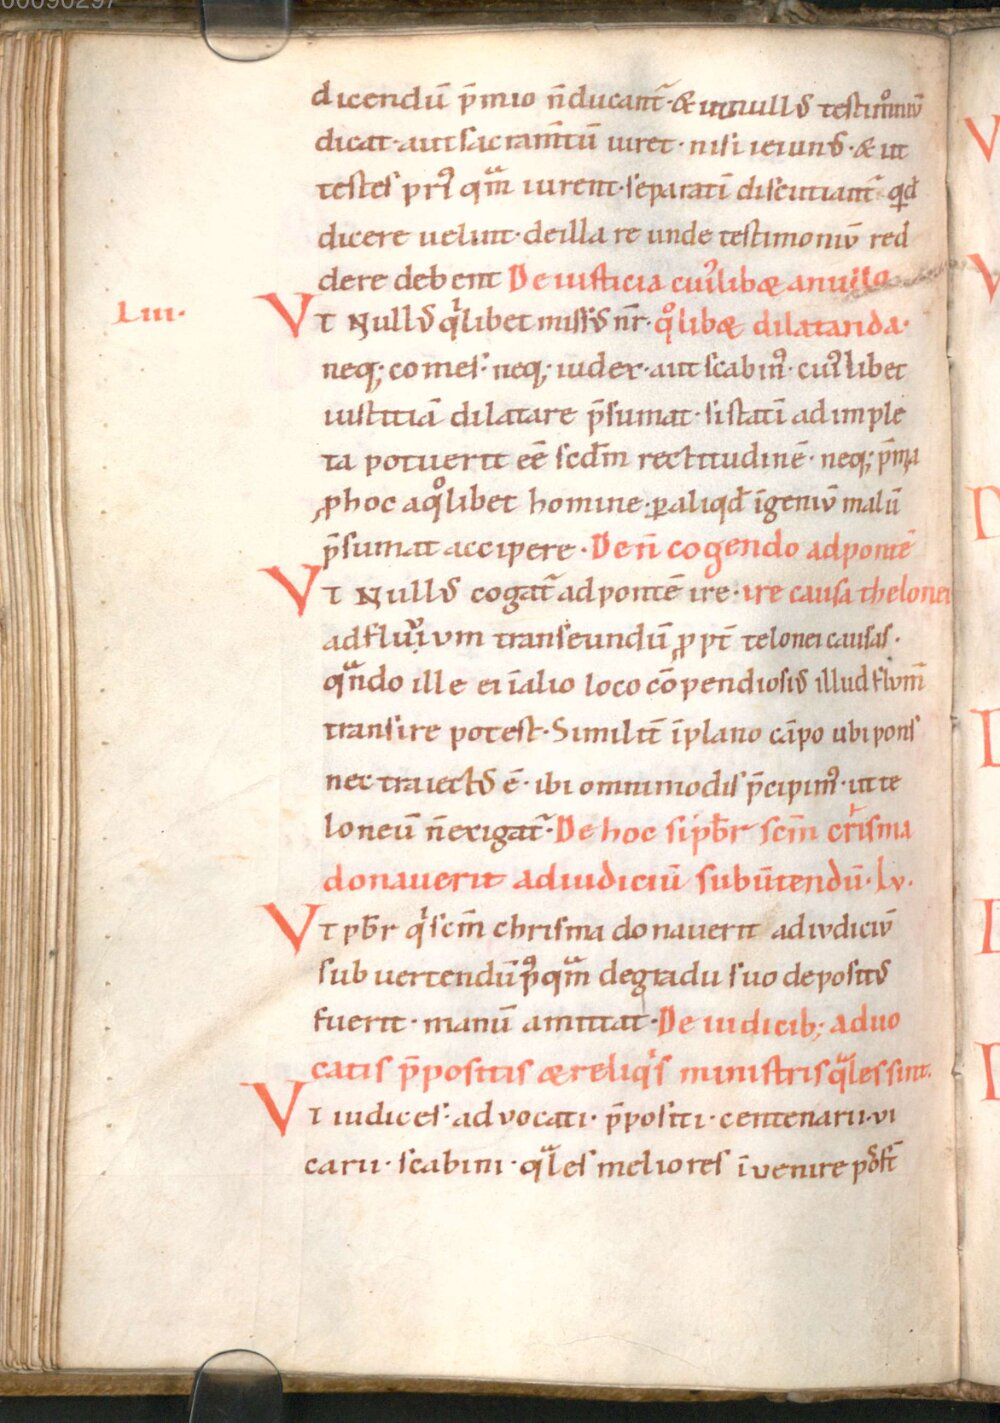 00090297
dicendū p̄mio n̄ducant᷑·& ut nullꝰ testimoniū
dicat·aut sacram̄tū iuret·nisi ieiunꝰ·& ut
testes priꝰ qͣm iurent·separatī discutiant᷑ qͥd
dicere uelint·deilla re unde testimoniū red
dere debent De iusticia cuiꝰlibæ
Liii·
Vt Nullꝰ qͥlibet missꝰ nr̄·qͦlibæ dilatanda·
neq;·comes·neq;·iudex·aut scabinꝰ·cuiꝰlibet
iustitiā dilatare p̄sumat·si statī adimple
ta potuerit eē scd̄m rectitudinē·neq; p̄mia
ꝓhoc aqͦlibet homine·ꝑaliqd̄ īgeniū malū
p̄sumat accipere·De n̄ cogendo adpontē
Vt Nullꝰ cogat᷑ adpontē ire·ire causa thelonei
adfluuium transeundū ꝓpt̄ telonei causas·
qͣndo ille ei ī alio loco cōpendiosiꝰ illud flum̄
transire potest·Similit̄ īplano cāpo ubi pons
nec traiectꝰ ē·ibi omnimodis p̄cipimꝰ·ut te
loneū n̄exigat᷑·De hoc si pb̄r scm̄ crisma
donauerit adiudiciū subūtendū·Lv·
Vt pb̄r qͥ scm̄ chrisma donauerit adiudiciū
sub uertendū pꝰqͣm degradu suo depositꝰ
fuerit·manū amittat·De iudicib; aduo
catis p̄positis æreliqͥs ministris qͣles sint.
Vt iudices·aduocati·p̄positi·centenarii·vi
carii·scabini·qͣles meliores īvenire pos̄t